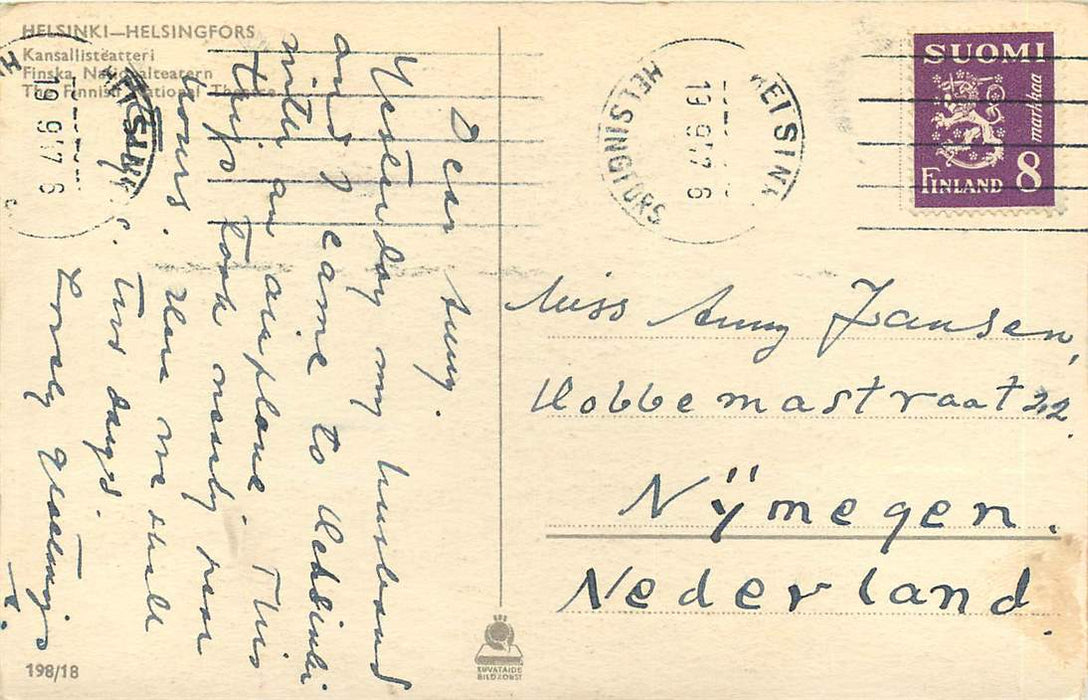 HELSINKI—HELSINGFORS
Kansallisteatteri
Finska Nationalteatern
The Finnish National Theatre
HELSINKI
19. 9.47. 6
HELSINKI
19. 9.47. 6
HELSINGFORS
SUOMI
markkaa
FINLAND 8
Dear Anny.
Yesterday my husband
and I came to Helsinki
with an airplane. This
trip took nearly four
hours. Here we shall
two days.
Lovely greetings
Miss Anny Jansen,
Hobbemastraat 22.
Nijmegen.
Nederland.
198/18
KUVATAIDE
BILDKONST